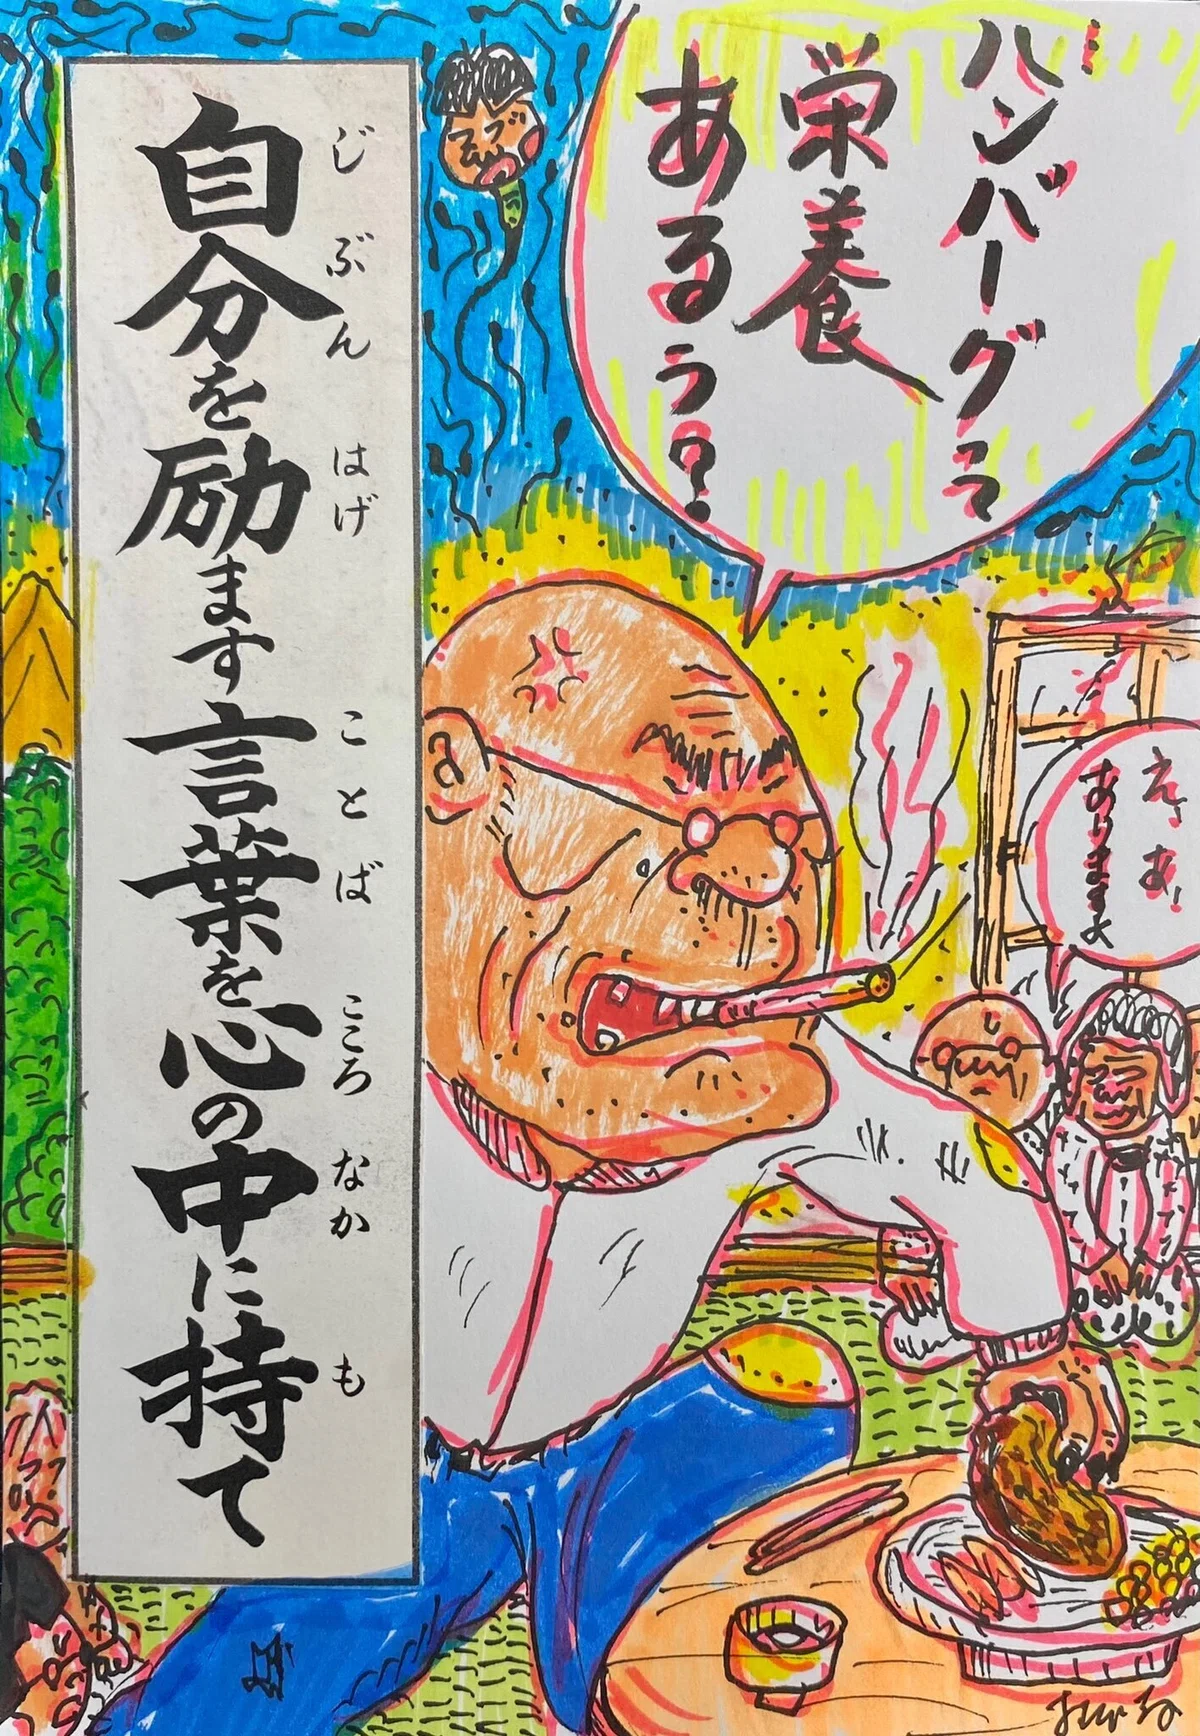 ハンバーグって
栄養
あるう?
えっ あ、
ありますよ
自分を励ます言葉を心の中に持て
じぶん はげ ことば こころ なか も